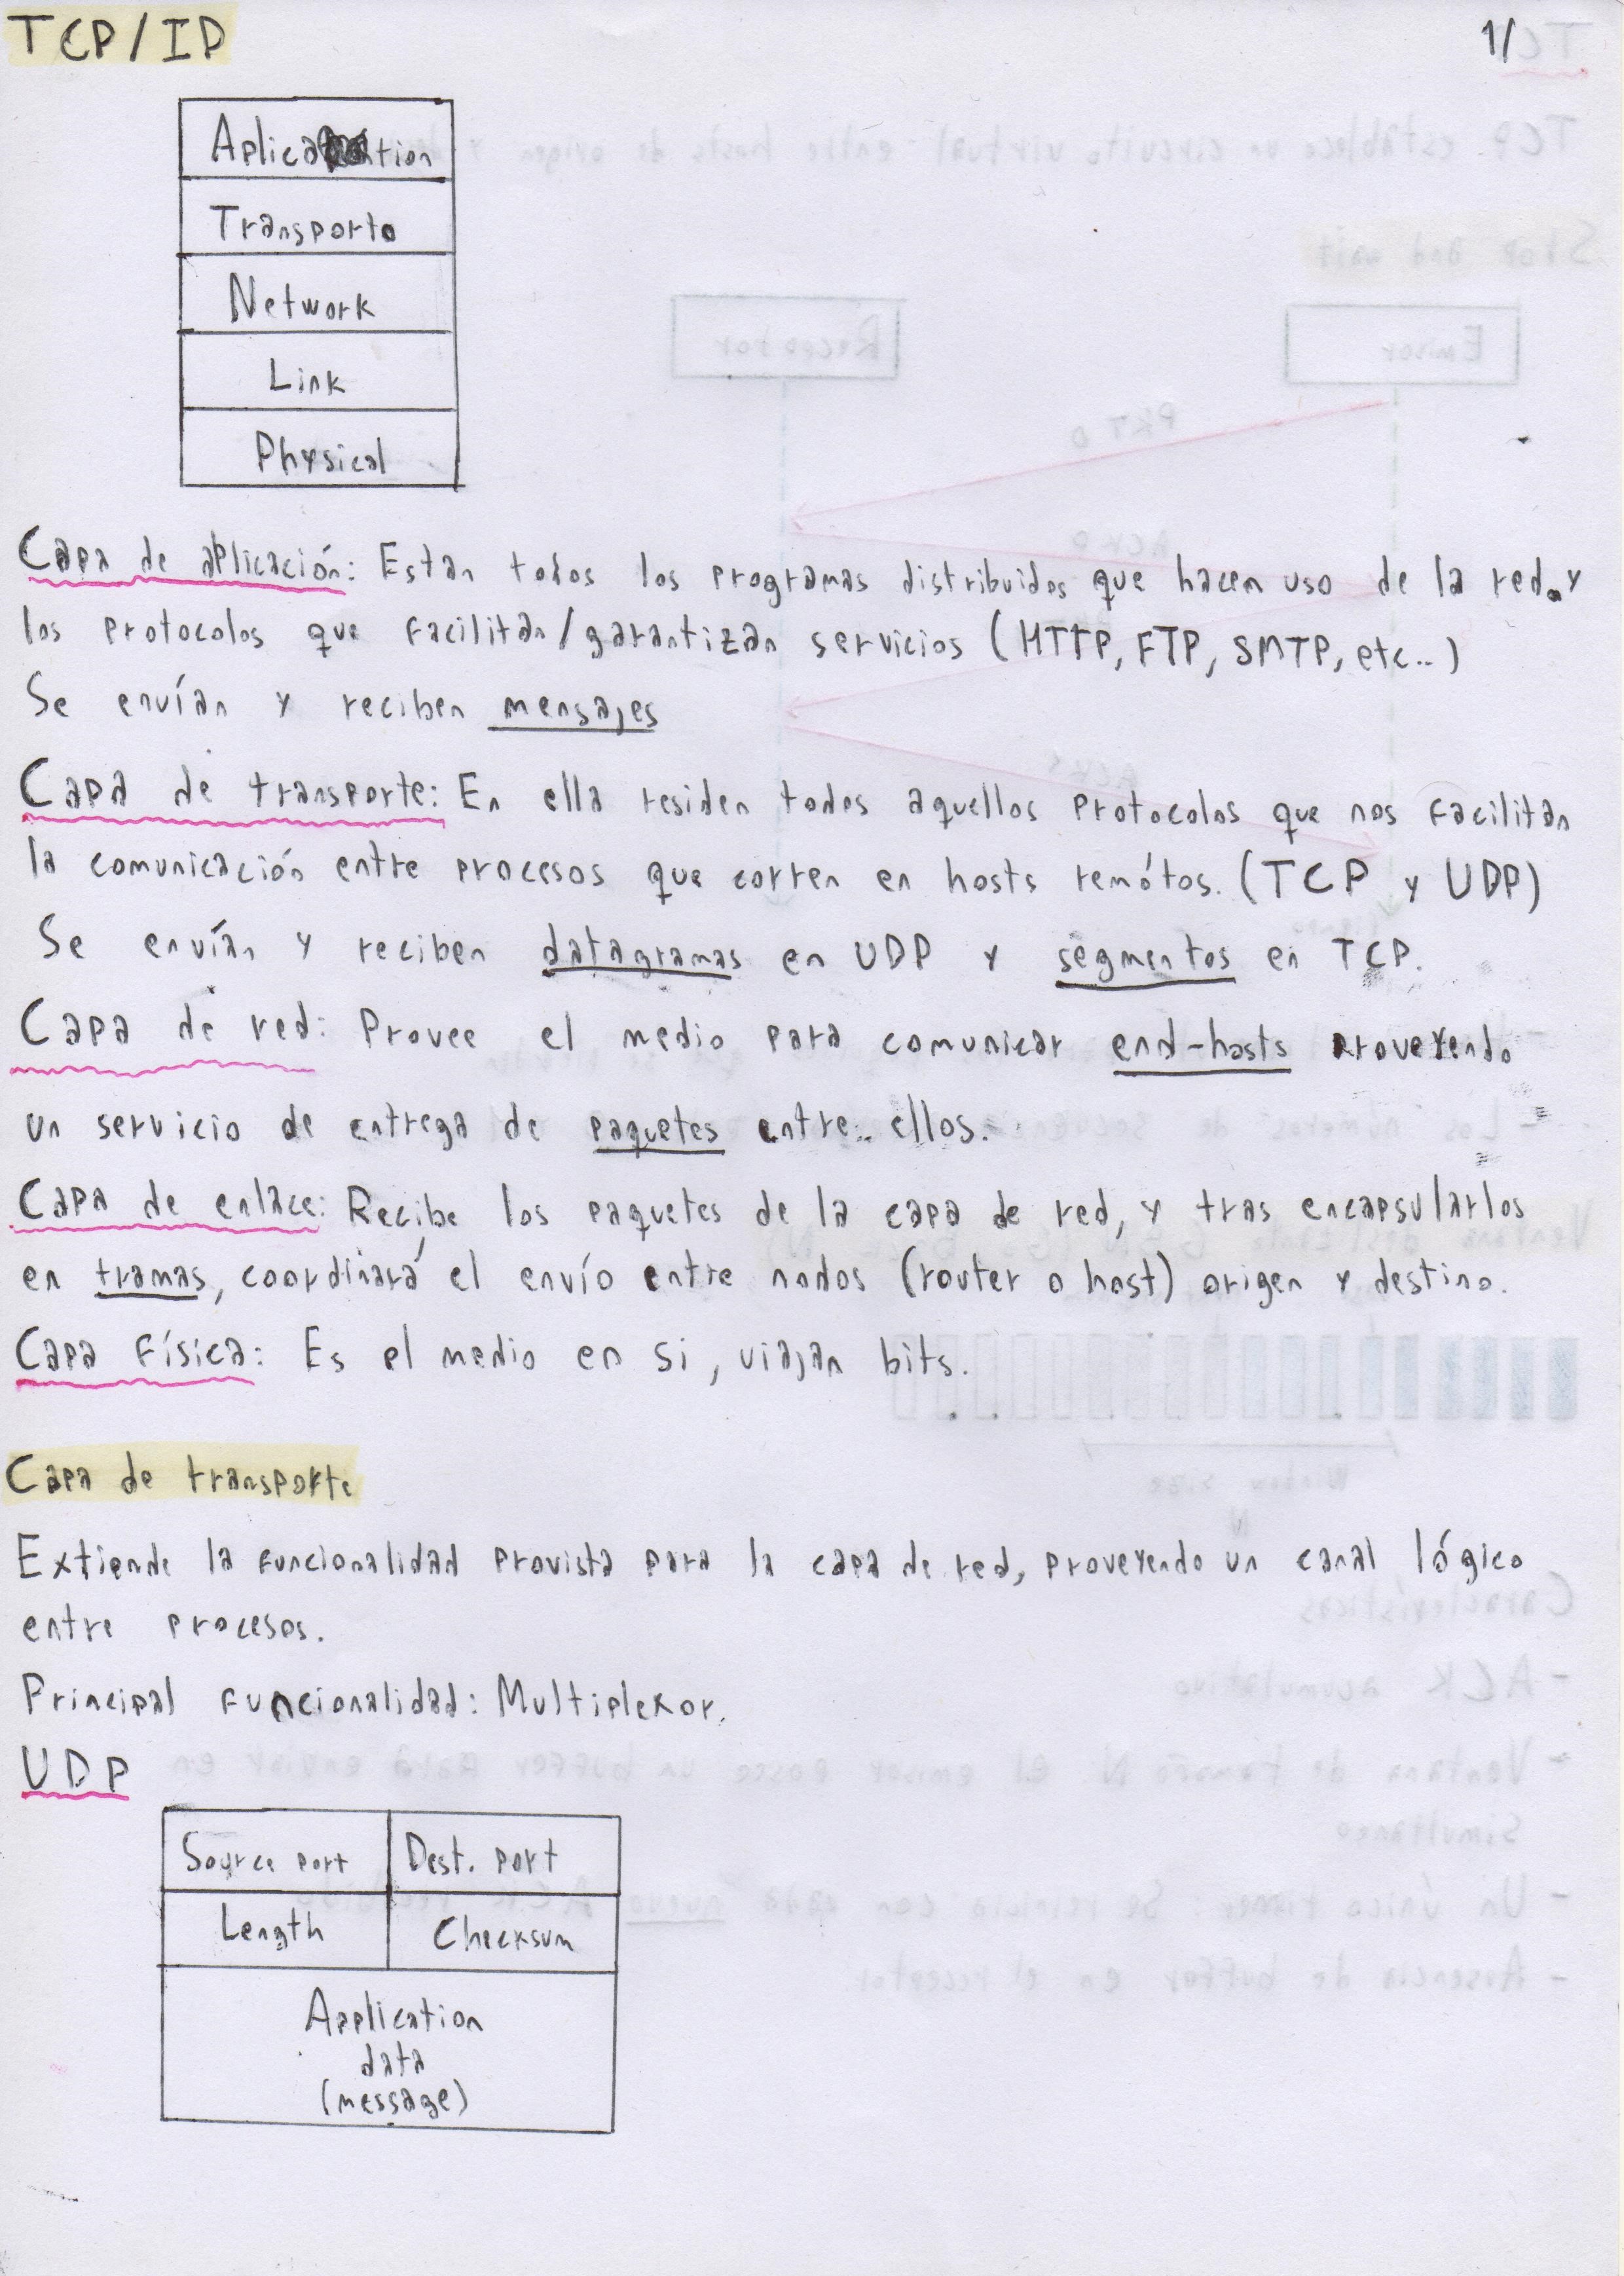 TCP/IP
1/
Aplication
Transporto
Network
Link
Physical
Capa de aplicación: Estan todos los programas distribuidos que hacen uso de la red y
los protocolos que facilitan/garantizan servicios (HTTP, FTP, SMTP, etc..)
Se envían y reciben mensajes
Capa de transporte: En ella residen todos aquellos protocolos que nos facilitan
la comunicación entre procesos que corren en hosts remótos. (TCP y UDP)
Se envían y reciben datagramas en UDP y segmentos en TCP.
Capa de red: Provee el medio para comunicar end-hosts proveyendo
un servicio de entrega de paquetes entre ellos.
Capa de enlace: Recibe los paquetes de la capa de red, y tras encapsularlos
en tramas, coordinará el envío entre nodos (router o host) origen y destino.
Capa física: Es el medio en si, viajan bits.
Capa de transporte
Extiende la funcionalidad provista para la capa de red, proveyendo un canal lógico
entre procesos.
Principal funcionalidad: Multiplexor.
UDP
Source port
Dest. port
Length
Checksum
Application
data
(message)